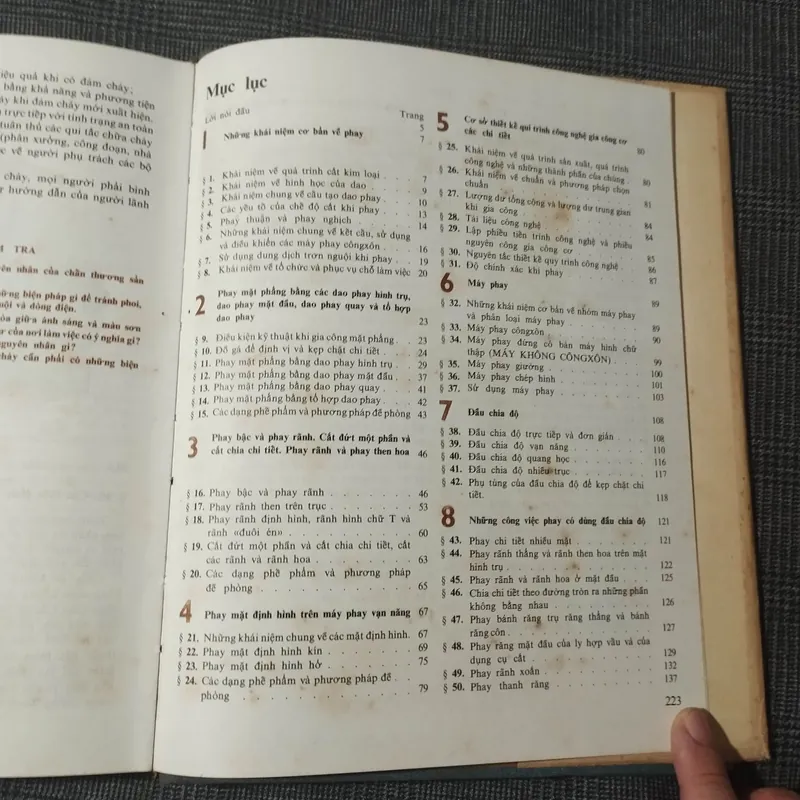 iệu quả khi có đám cháy;
bằng khả năng và phương tiện
khi đám cháy mới xuất hiện.
trực tiếp với tình trạng an toàn
tuân thủ các qui tắc chữa cháy
(phân xưởng, công đoạn, nhà
về người phụ trách các bộ
cháy, mọi người phải bình
hướng dẫn của người lãnh
TRA
nhân của chấn thương sản
những biện pháp gì để tránh phoi,
và dòng điện.
giữa ánh sáng và màu sơn
của nơi làm việc có ý nghĩa gì?
nguyên nhân gì?
cháy cần phải có những biện
Mục lục
Lời nói đầu
Trang
5
1 Những khái niệm cơ bản về phay 7
§ 1. Khái niệm về quá trình cắt kim loại . . 7
§ 2. Khái niệm về hình học của dao . . . 9
§ 3. Khái niệm chung về cấu tạo dao phay . 10
§ 4. Các yếu tố của chế độ cắt khi phay . . 13
§ 5. Phay thuận và phay nghịch . . . . 14
§ 6. Những khái niệm chung về kết cấu, sử dụng
và điều khiển các máy phay côngxôn . . 16
§ 7. Sử dụng dung dịch trơn nguội khi phay . 19
§ 8. Khái niệm về tổ chức và phục vụ chỗ làm việc 20
2 Phay mặt phẳng bằng các dao phay hình trụ,
dao phay mặt đầu, dao phay quay và tổ hợp
dao phay 23
§ 9. Điều kiện kỹ thuật khi gia công mặt phẳng . 23
§ 10. Đồ gá để định vị và kẹp chặt chi tiết . . 24
§ 11. Phay mặt phẳng bằng dao phay hình trụ . 29
§ 12. Phay mặt phẳng bằng dao phay mặt đầu . 37
§ 13. Phay mặt phẳng bằng dao phay quay . . 41
§ 14. Phay mặt phẳng bằng tổ hợp dao phay . . 42
§ 15. Các dạng phế phẩm và phương pháp đề phòng 43
3 Phay bậc và phay rãnh. Cắt đứt một phần và
cắt chia chi tiết. Phay rãnh và phay then hoa 46
§ 16. Phay bậc và phay rãnh . . . . . . 46
§ 17. Phay rãnh then trên trục . . . . . 53
§ 18. Phay rãnh định hình, rãnh hình chữ T và
rãnh «đuôi én» . . . . . . . . 60
§ 19. Cắt đứt một phần và cắt chia chi tiết, cắt
các rãnh và rãnh hoa . . . . . . 63
§ 20. Các dạng phế phẩm và phương pháp
đề phòng . . . . . . . . . . 65
4 Phay mặt định hình trên máy phay vạn năng 67
§ 21. Những khái niệm chung về các mặt định hình. 67
§ 22. Phay mặt định hình kín . . . . . . 69
§ 23. Phay mặt định hình hở . . . . . . 75
§ 24. Các dạng phế phẩm và phương pháp đề . .
phòng . . . . . . . . . . . 79
5 Cơ sở thiết kế qui trình công nghệ gia công cơ
các chi tiết 80
§ 25. Khái niệm về quá trình sản xuất, quá trình
công nghệ và những thành phần của chúng . 80
§ 26. Khái niệm về chuẩn và phương pháp chọn
chuẩn . . . . . . . . . . . 81
§ 27. Lượng dư tổng cộng và lượng dư trung gian
khi gia công . . . . . . . . . 84
§ 28. Tài liệu công nghệ . . . . . . . 84
§ 29. Lập phiếu tiến trình công nghệ và phiếu
nguyên công gia công cơ . . . . . 85
§ 30. Nguyên tắc thiết kế quy trình công nghệ . 86
§ 31. Độ chính xác khi phay . . . . . . 87
6 Máy phay 89
§ 32. Những khái niệm cơ bản về nhóm máy phay
và phân loại máy phay . . . . . . 89
§ 33. Máy phay côngxôn . . . . . . . 90
§ 34. Máy phay đứng có bàn máy hình chữ
thập (MÁY KHÔNG CÔNGXÔN) . . . . 99
§ 35. Máy phay giường . . . . . . . 100
§ 36. Máy phay chép hình . . . . . . 101
§ 37. Sử dụng máy phay . . . . . . . 103
7 Đầu chia độ 108
§ 38. Đầu chia độ trực tiếp và đơn giản . . . 108
§ 39. Đầu chia độ vạn năng . . . . . . 110
§ 40. Đầu chia độ quang học . . . . . . 116
§ 41. Đầu chia độ nhiều trục . . . . . . 117
§ 42. Phụ tùng của đầu chia độ để kẹp chặt chi
tiết. . . . . . . . . . . . . 118
8 Những công việc phay có dùng đầu chia độ 121
§ 43. Phay chi tiết nhiều mặt . . . . . . 121
§ 44. Phay rãnh thẳng và rãnh then hoa trên mặt
hình trụ . . . . . . . . . . . 122
§ 45. Phay rãnh và rãnh hoa ở mặt đầu . . . 125
§ 46. Chia chi tiết theo đường tròn ra những phần
không bằng nhau . . . . . . . . 126
§ 47. Phay bánh răng trụ răng thẳng và bánh
răng côn . . . . . . . . . . . 127
§ 48. Phay răng mặt đầu của ly hợp vấu và của
dụng cụ cắt . . . . . . . . . . 129
§ 49. Phay rãnh xoắn . . . . . . . . 132
§ 50. Phay thanh răng . . . . . . . . 137
223